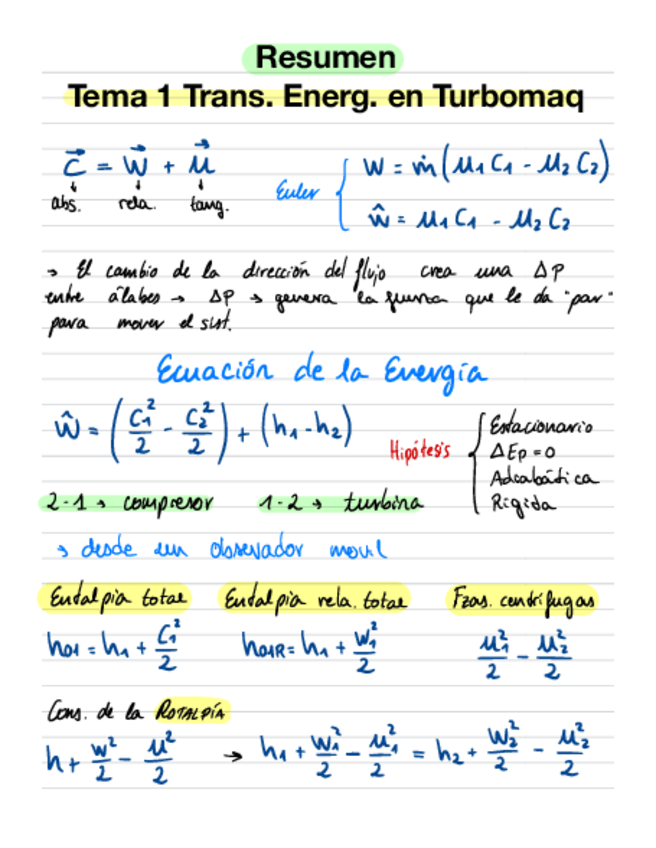 Resumen
Tema 1 Trans. Energ. en Turbomaq
c⃗ = w⃗ + u⃗
abs. rela. tang.
Euler { W = ṁ(u₁C₁ - u₂C₂)
ŵ = u₁C₁ - u₂C₂
→ El cambio de la dirección del flujo crea una ΔP
entre álabes → ΔP → genera la fuerza que le da "par"
para mover el sist.
Ecuación de la Energía
ŵ = (C₁²/2 - C₂²/2) + (h₁ - h₂)
Hipótesis { Estacionario
ΔEp = 0
Adiabática
Rígida
2-1 → compresor 1-2 → turbina
→ desde un observador movil
Entalpia total Entalpia rela. total Fzas. centrífugas
h₀₁ = h₁ + C₁²/2 h₀₁R = h₁ + W₁²/2 u₁²/2 - u₂²/2
Cons. de la ROTALPÍA
h + w²/2 - u²/2 → h₁ + W₁²/2 - u₁²/2 = h₂ + W₂²/2 - u₂²/2